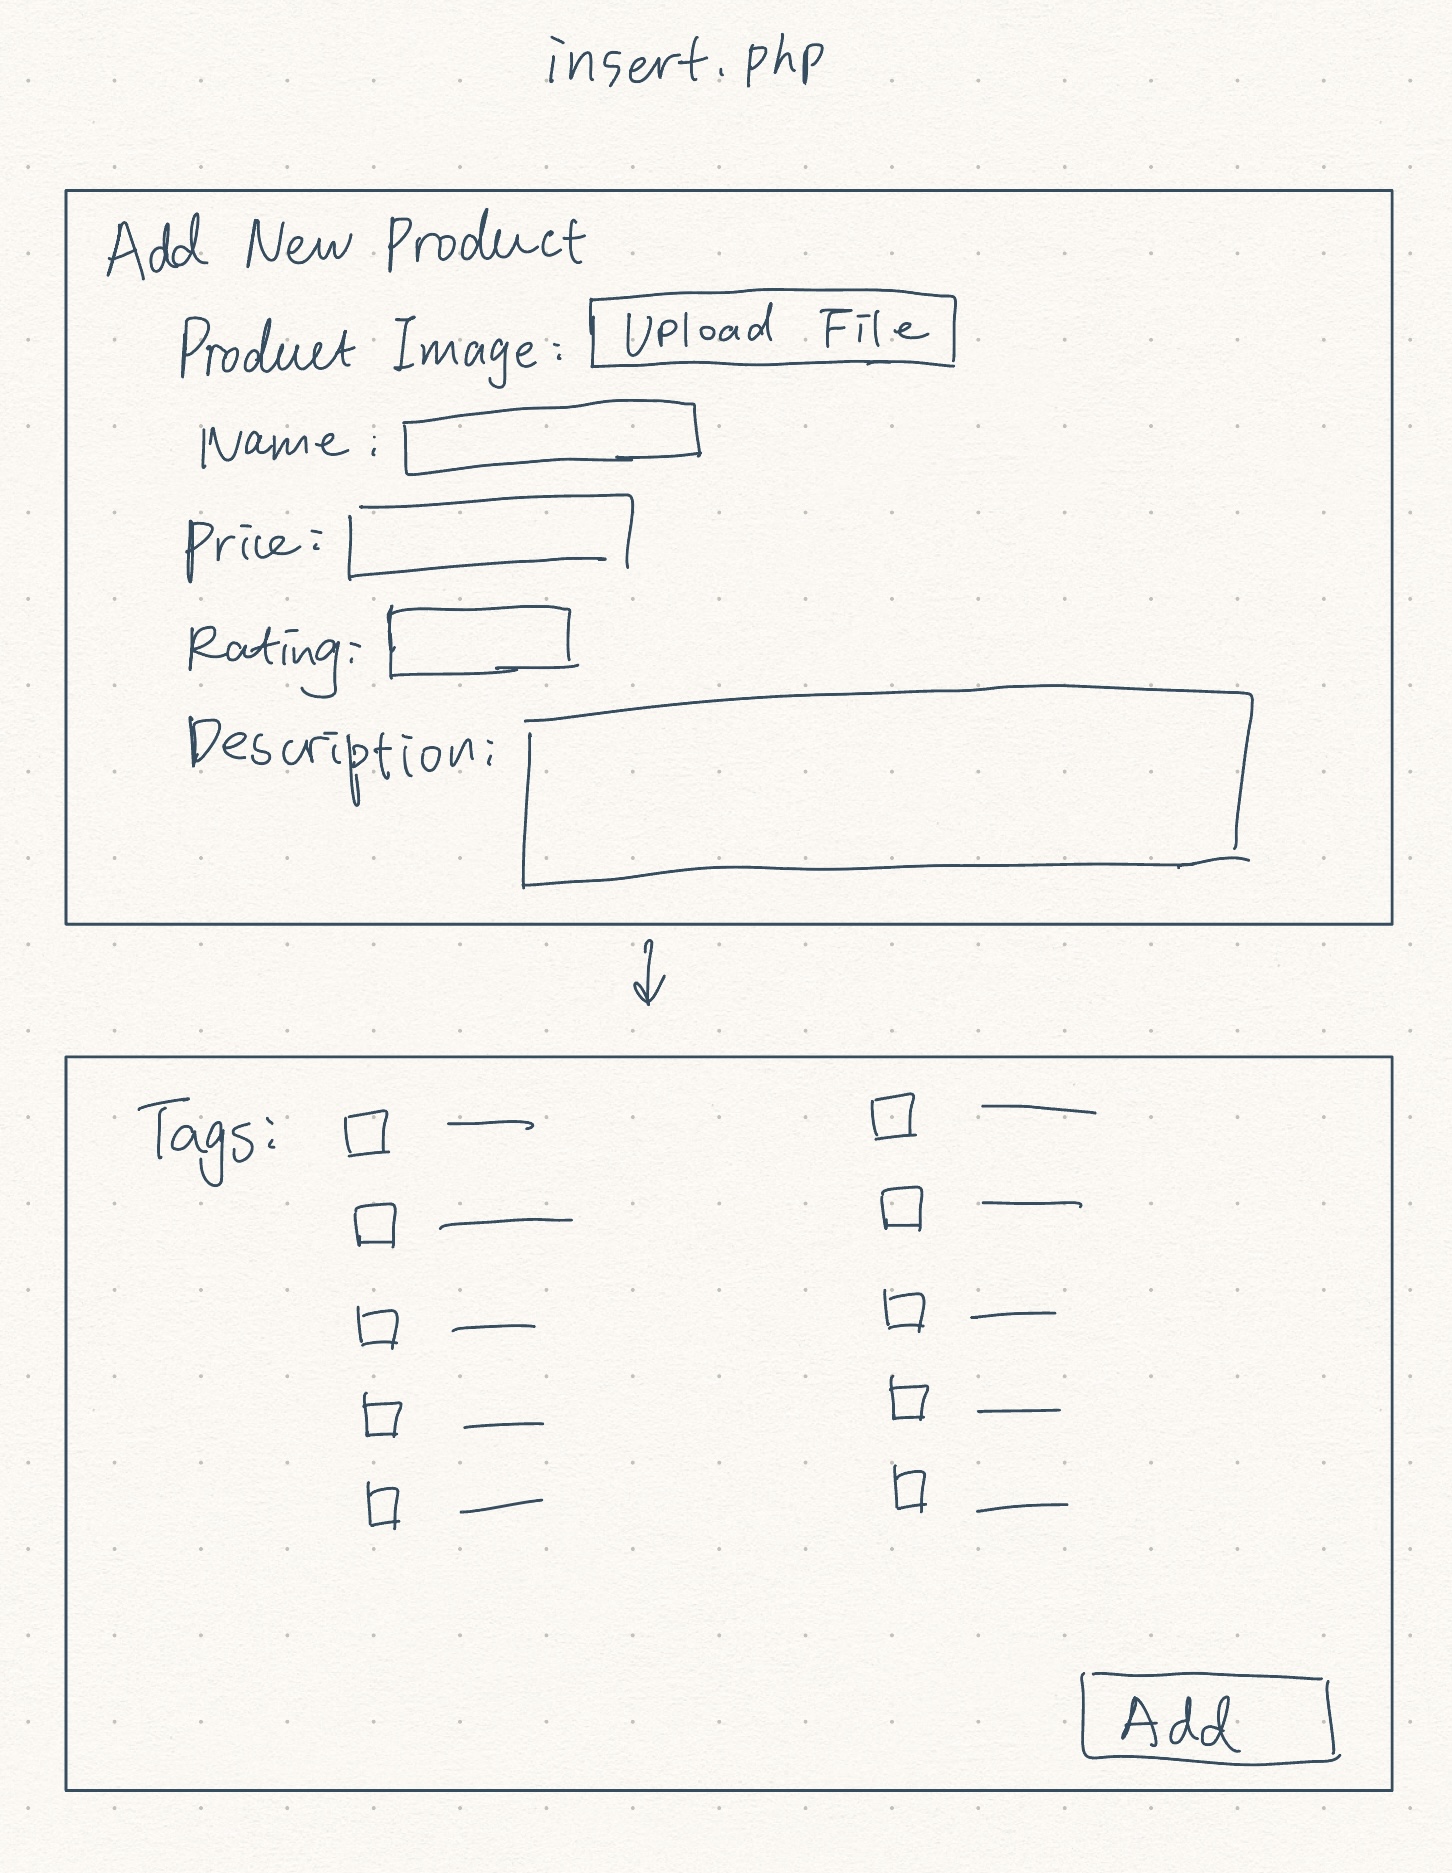 insert.php
Add New Product
Product Image: Upload File
Name:
Price:
Rating:
Description:
Tags:
Add